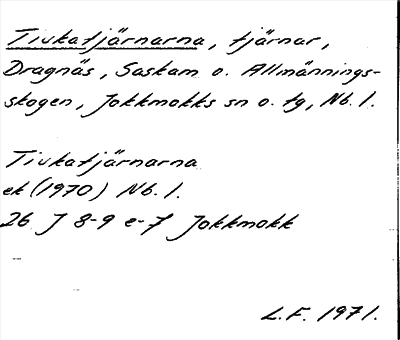 Tiukatjärnarna, tjärnar,
Dragnäs, Saskam o. Allmännings-
skogen, Jokkmokks sn o. tg, Nb. l.
Tiukatjärnarna
ek (1970) Nb. l.
26 J 8-9 e-f Jokkmokk
L.F. 1971.